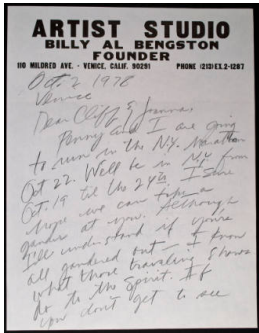 ARTIST STUDIO
BILLY AL BENGSTON
FOUNDER
110 MILDRED AVE. - VENICE, CALIF. 90291 PHONE (213) EX.2-1287
Oct 2 1978
Venice
Dear Cliff & Joanna,
Penny and I are going
to run in the N.Y. Marathon
Oct 22. We'll be in N.Y. from
Oct. 19 til the 24th. I sure
hope we can take a
gander at you. Although
I'll understand if you're
all gandered out — I know
what those traveling shows
do to the spirit. If
you don't get to see